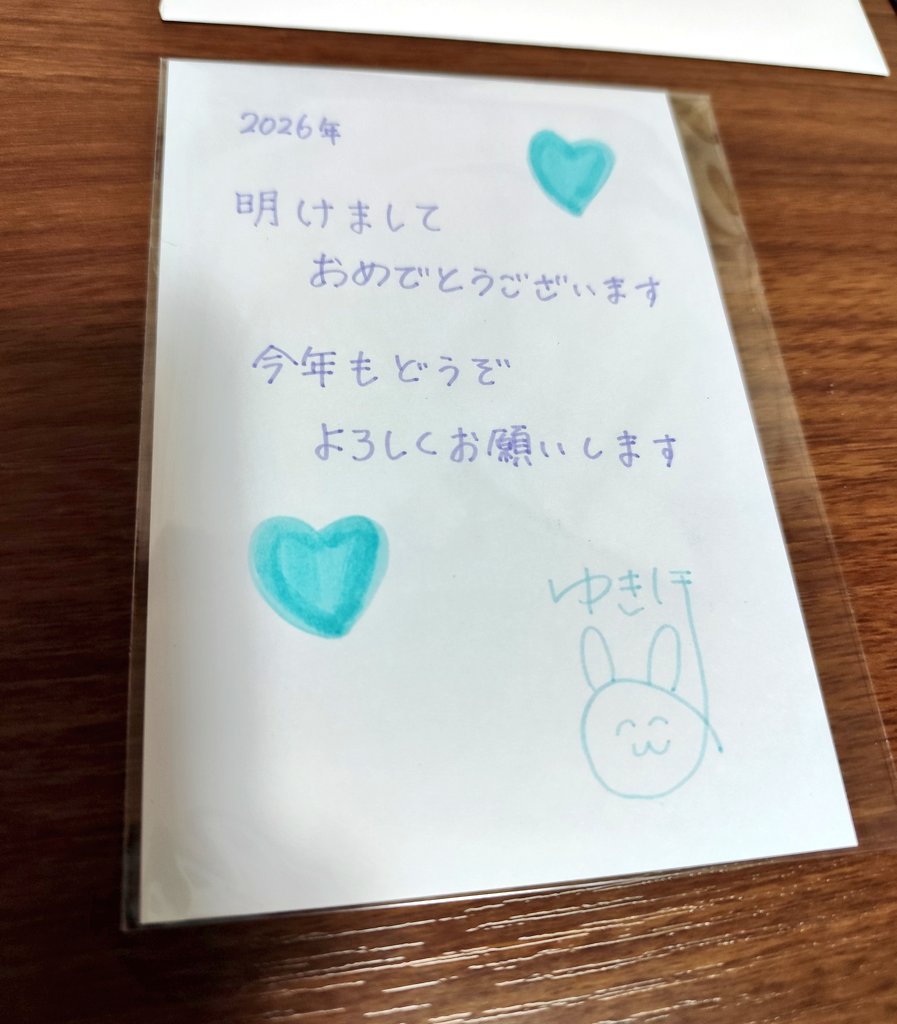 2026年
明けまして
おめでとうございます
今年もどうぞ
よろしくお願いします
ゆきほ